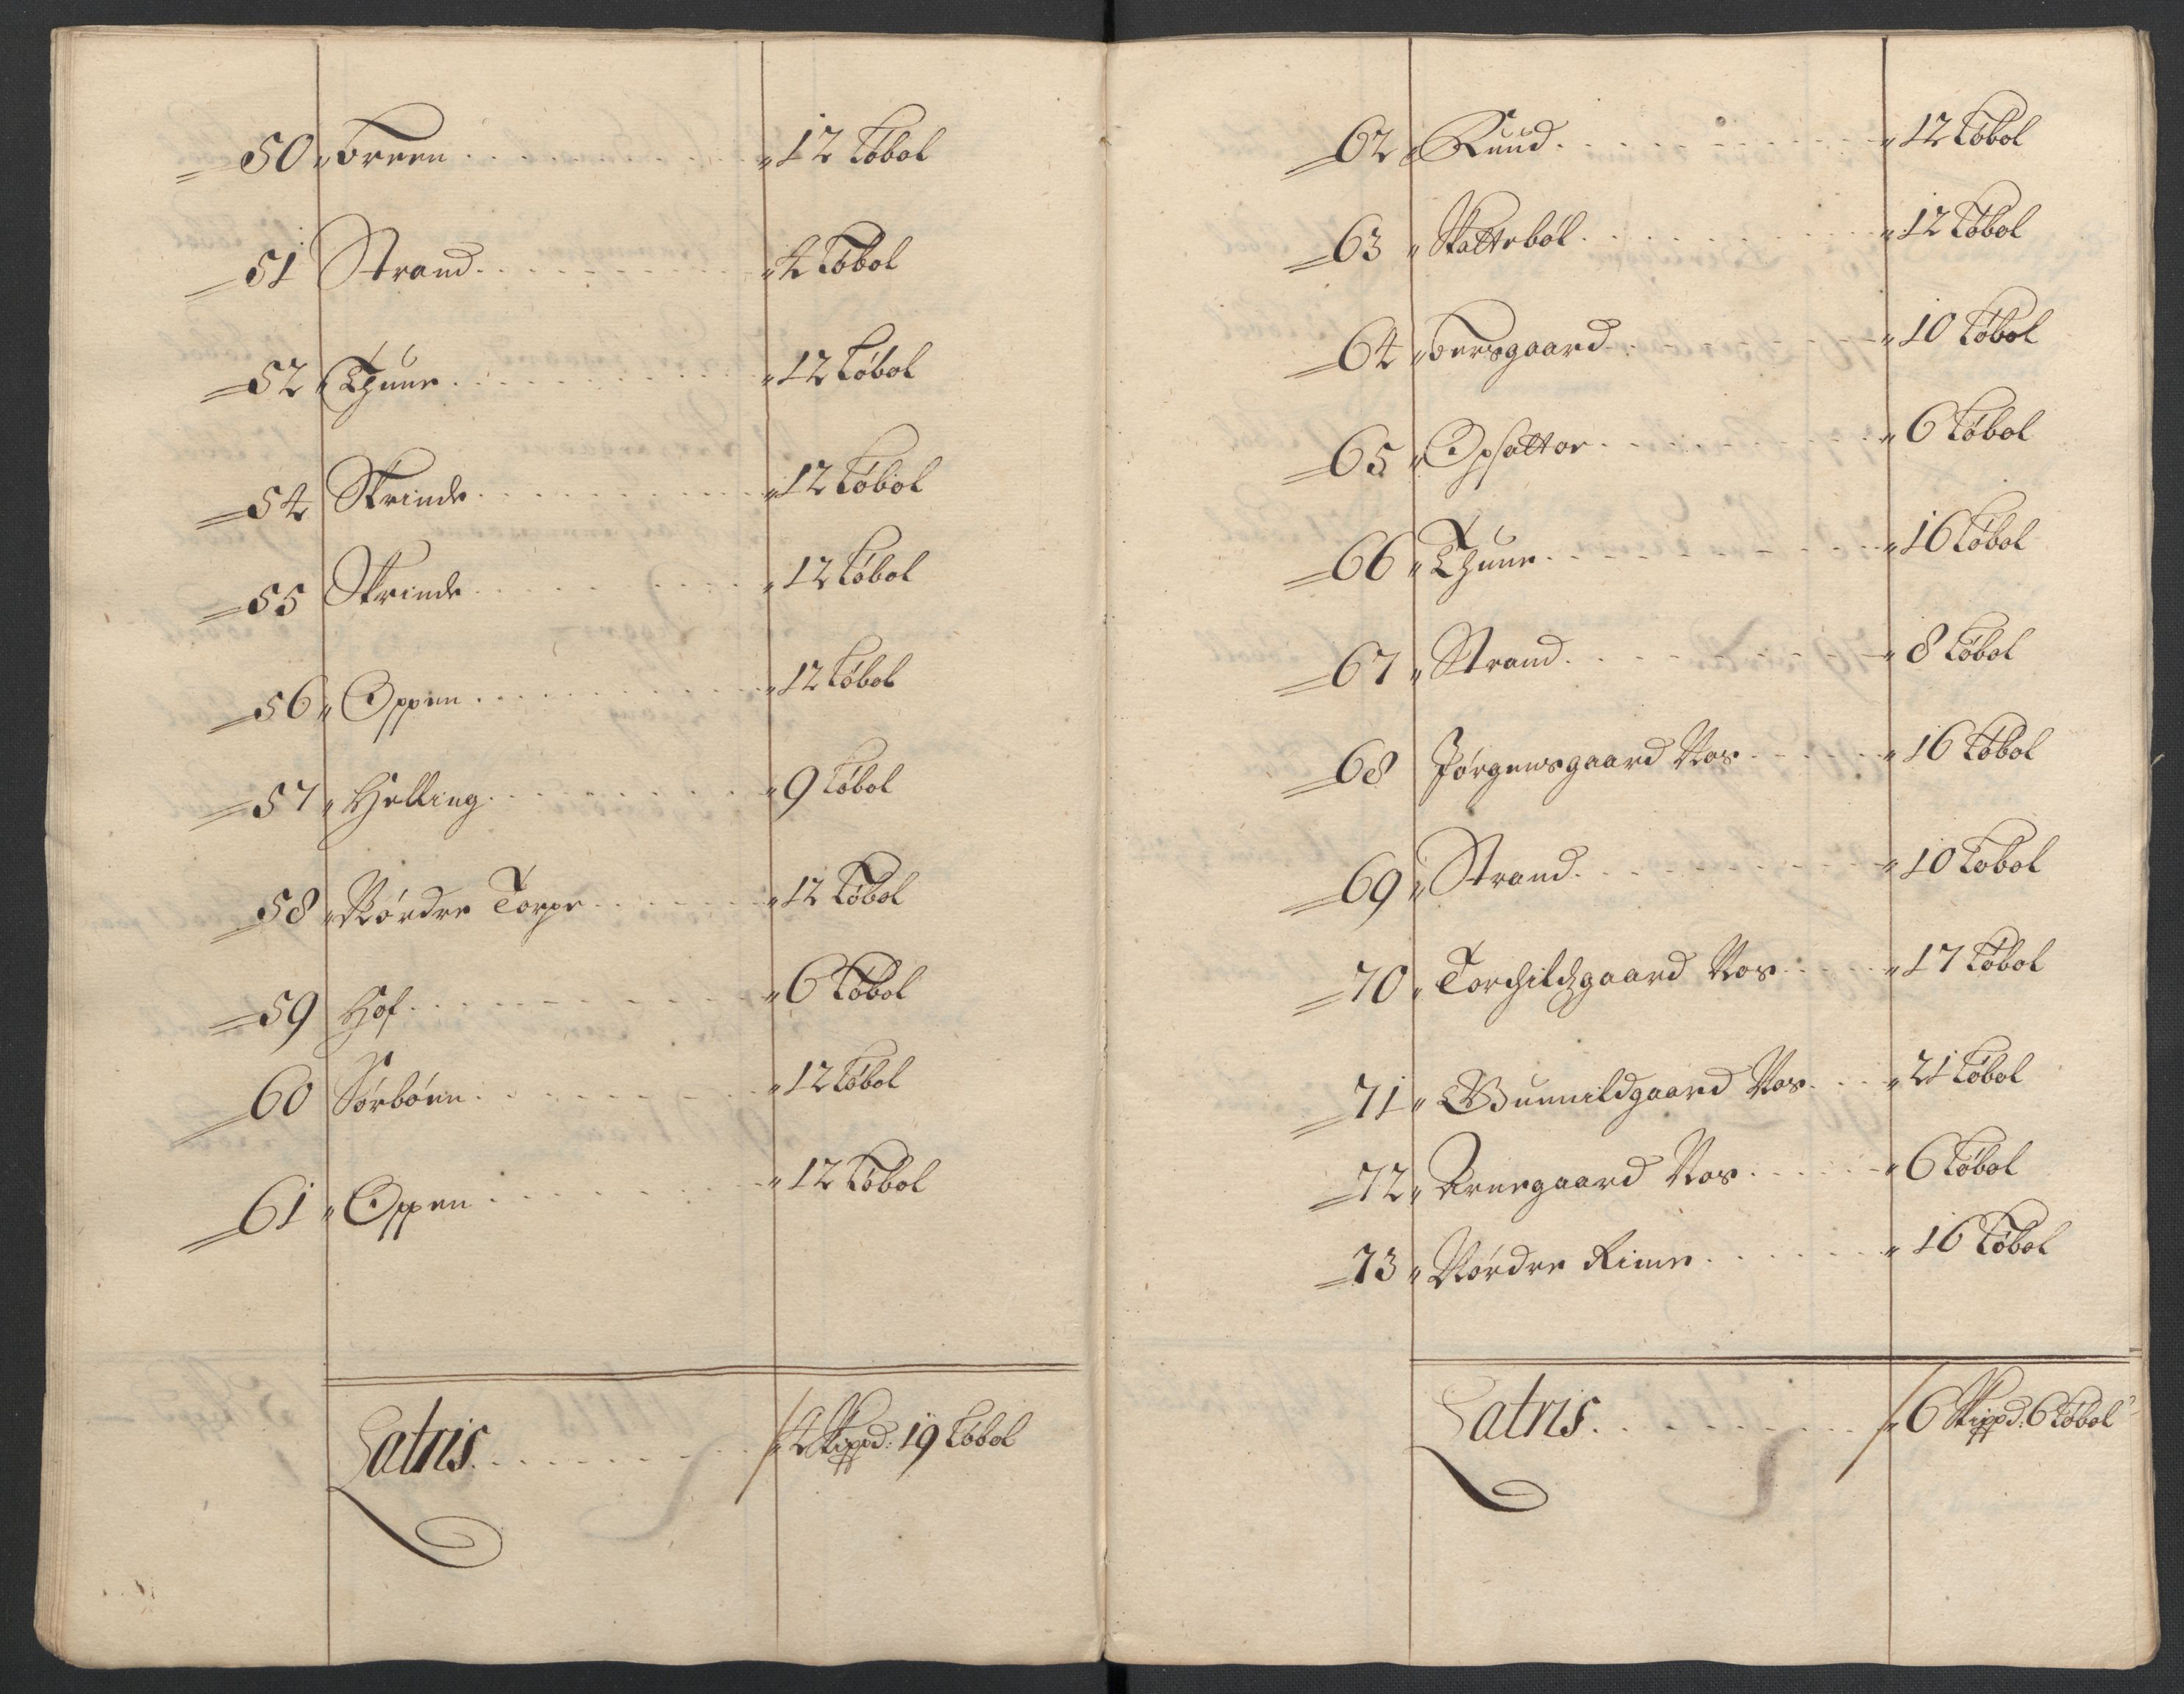 50 „ Breen . . . . . . . . „ 12 Løbol
51 Strand . . . . . . . . „ 4 Løbol
52 „ Thune . . . . . . . . „ 12 Løbol
54 Skrinde . . . . . . . . „ 12 Løbol
55 Skrinde . . . . . . . . „ 12 Løbol
56 „ Oppen . . . . . . . . „ 12 Løbol
57 „ Helling . . . . . . . . „ 9 Løbol
58 „ Nørdre Torpe . . . . . . „ 12 Løbol
59 Hof . . . . . . . . „ 6 Løbol
60 Sørbøen . . . . . . . . „ 12 Løbol
61 „ Oppen . . . . . . . . „ 12 Løbol
Latris . . . . . . . . „ 4 Skippd: 19 Løbol
62 „ Ruud . . . . . . . . „ 12 Løbol
63 „ Skattebøl . . . . . . . . „ 12 Løbol
64 „ Bersgaard . . . . . . „ 10 Løbol
65 „ Opsatter . . . . . . . . „ 6 Løbol
66 „ Thune . . . . . . . . „ 16 Løbol
67 „ Strand . . . . . . . . „ 8 Løbol
68 Jørgensgaard Naes . . . . „ 16 Løbol
69 „ Strand . . . . . . . . „ 10 Løbol
70 „ Torchildzgaard Naes . . . . „ 17 Løbol
71 „ Gunnildgaard Naes . . . „ 21 Løbol
72 „ Arnegaard Naes . . . . . „ 6 Løbol
73 „ Nørdre Rime . . . . . . „ 16 Løbol
Latris . . . . . . . . „ 6 Skippd: 6 Løbol